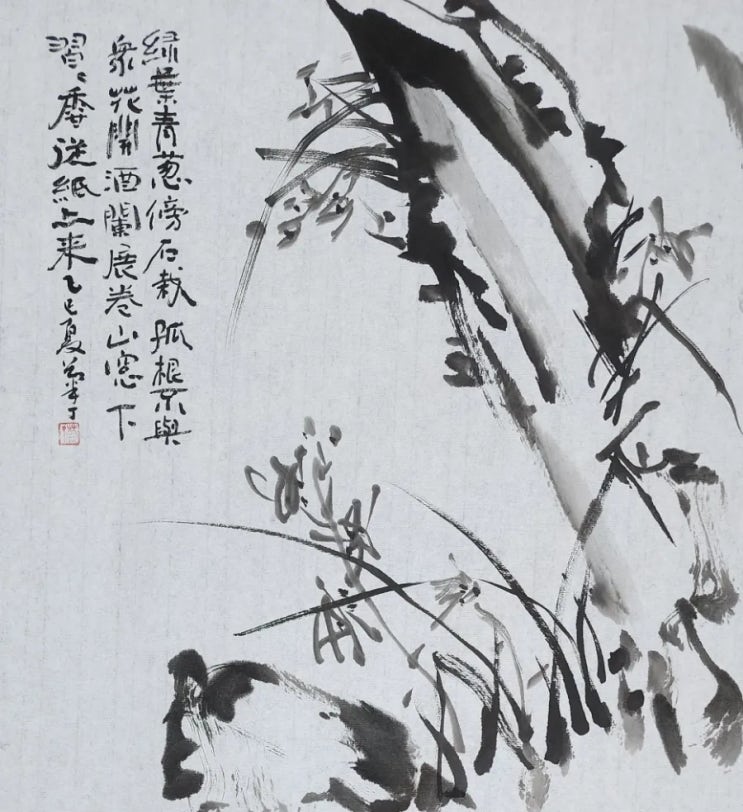 緑葉青葱傍石栽孤根不與
衆花開酒闌展卷山窓下
習〻香從紙上来乙巳夏